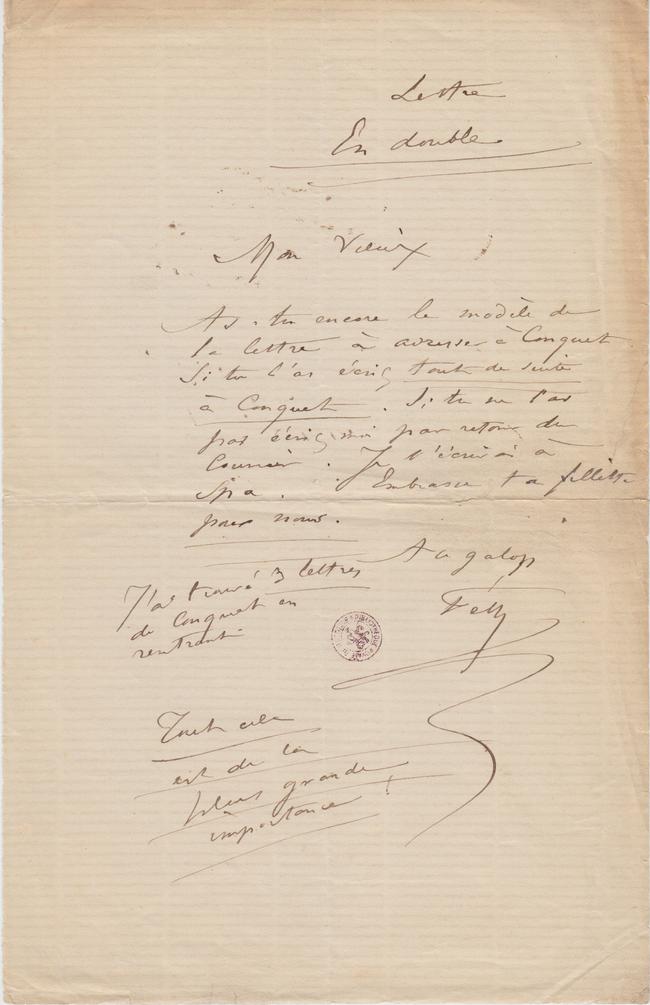 Lettre
En double
Mon Vieux
As-tu encore le modèle de
la lettre à adresser à Conquet
Si tu l'as écris tout de suite
à Conquet. Si tu ne l'as
pas écris moi par retour du
Courrier. Je t'écrirai à
Spa. Embrasse ta fillette
pour nous.
Au galop
Fély
J'ai trouvé 3 lettres
de Conquet en
rentrant
Tout cela
est de la
plus grande
importance!